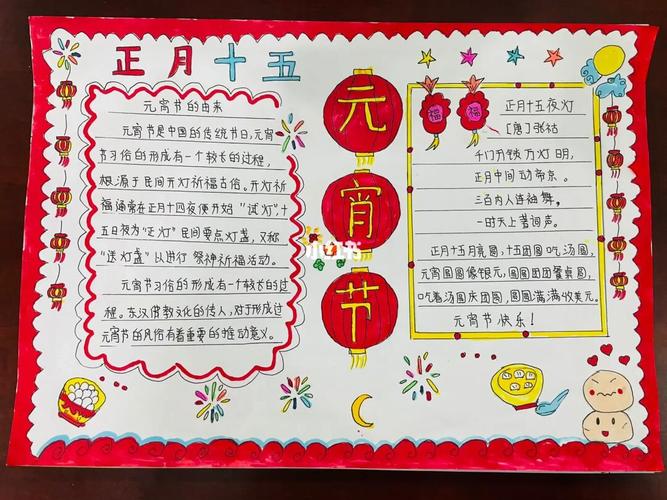 正月十五
元宵节的由来
元宵节是中国的传统节日,元宵
节习俗的形成有一个较长的过程,
根源于民间开灯祈福古俗。开灯祈
福通常在正月十四夜便开始“试灯”,十
五日夜为“正灯”民间要点灯盏,又称
“送灯盏”以进行祭神祈福活动。
元宵节习俗的形成有一个较长的过
程。东汉佛教文化的传入,对于形成过
元宵节的风俗有着重要的推动意义。
元
宵
节
小红书
福
福
正月十五夜灯
[唐]张祜
千门开锁万灯明,
正月中间动帝京。
三百内人连袖舞,
一时天上著词声。
正月十五月亮圆,十五团圆吃汤圆,
元宵圆圆像银元,圆圆团团餐桌圆,
吃着汤圆庆团圆,圆圆满满收美元。
元宵节快乐!